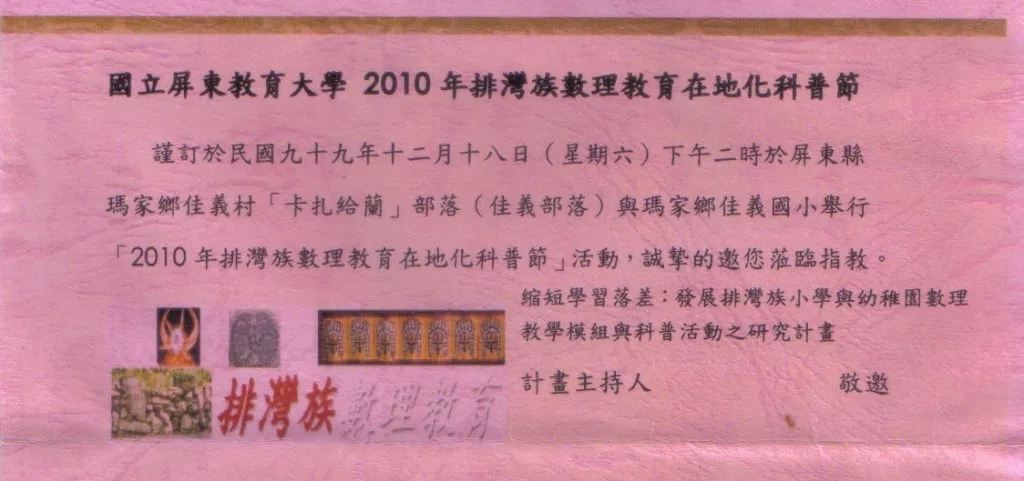 國立屏東教育大學 2010 年排灣族數理教育在地化科普節
謹訂於民國九十九年十二月十八日（星期六）下午二時於屏東縣
瑪家鄉佳義村「卡扎給蘭」部落（佳義部落）與瑪家鄉佳義國小舉行
「2010 年排灣族數理教育在地化科普節」活動，誠摯的邀您蒞臨指教。
縮短學習落差：發展排灣族小學與幼稚園數理
教學模組與科普活動之研究計畫
計畫主持人 敬邀
排灣族 數理教育